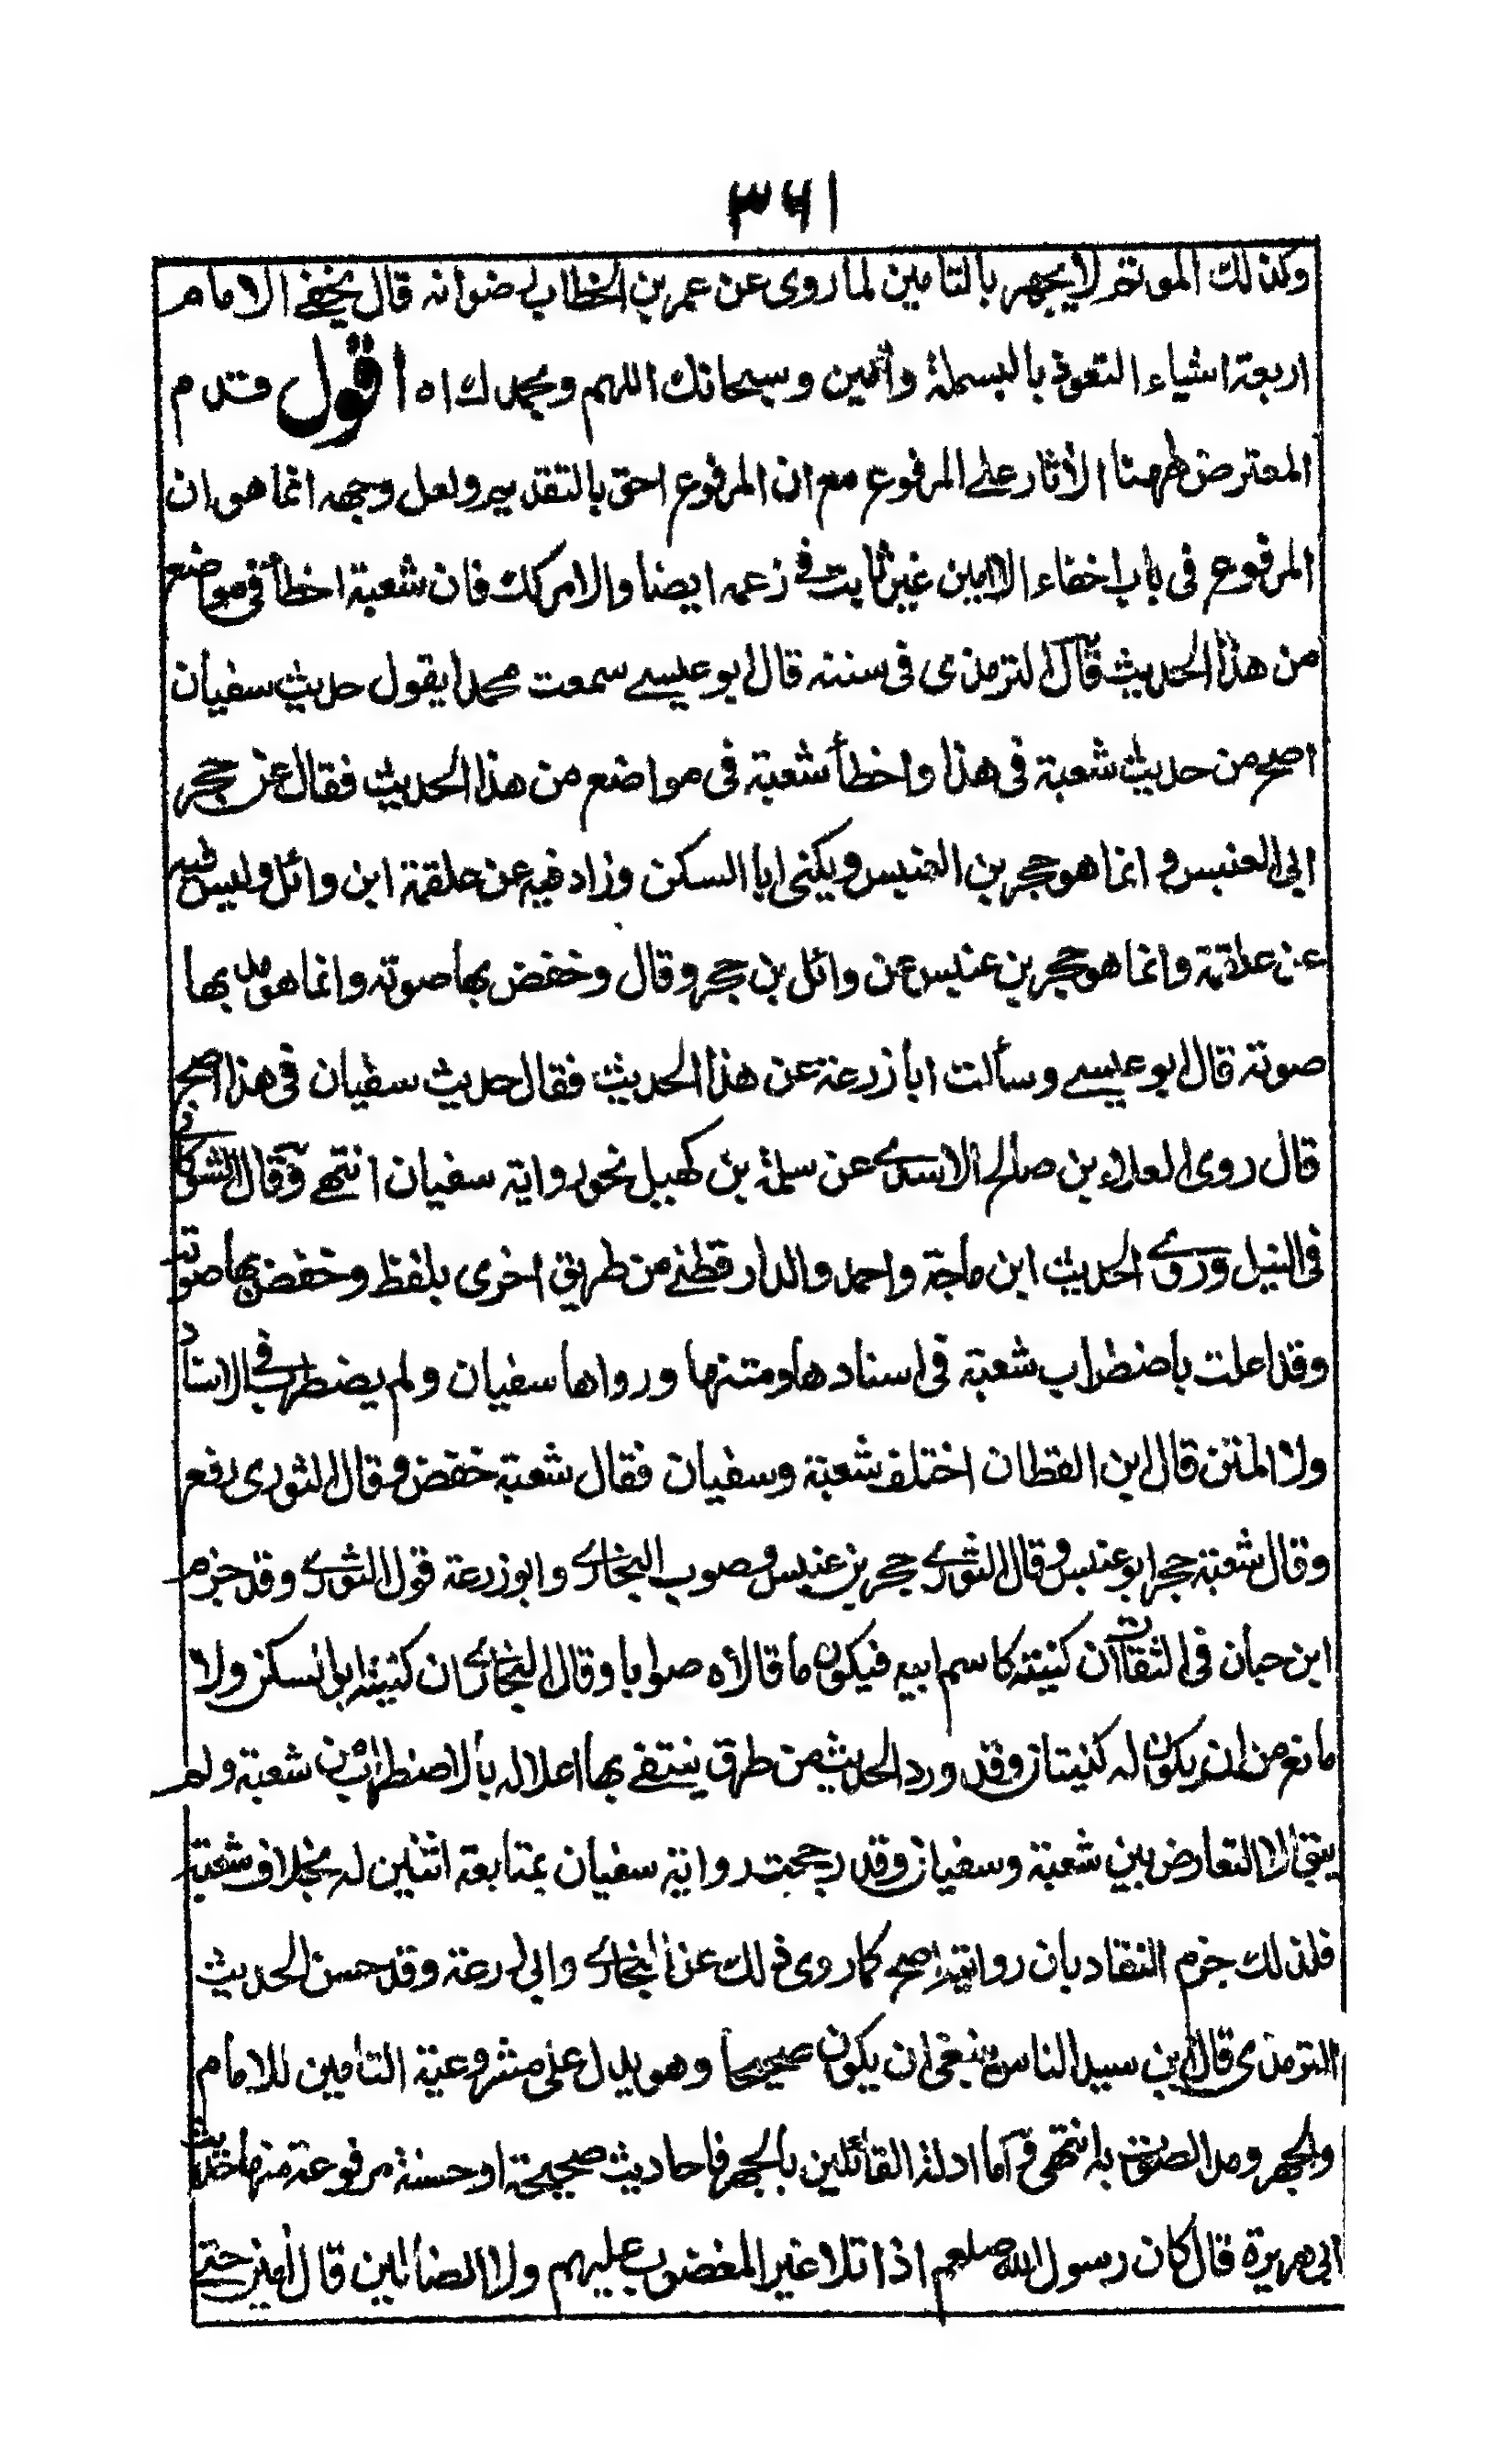 ٣٦١
وكذلك الموتم لا يجهر بالتامين لما روى عن عمر بن الخطاب رض انه قال يخفے الامام
اربعة اشياء التعوذ بالبسملة وآمين وسبحانك اللهم وبحمدك اه اقول قدم
المعترض ههنا الأثار على المرفوع مع ان المرفوع احق بالتقديم ولعل وجهه انما هو ان
المرفوع فى باب اخفاء الآمين غير ثابت فے زعمه ايضا والامر كك فان شعبة اخطأ فى مواضع
من هذا الحديث قال الترمذى فى سننه قال ابو عيسے سمعت محمدا يقول حديث سفيان
اصح من حديث شعبة فى هذا واخطأ شعبة فى مواضع من هذا الحديث فقال عن حجر
ابى العنبس وانما هو حجر بن العنبس ويكنى ابا السكن وزاد فيه عن علقمة ابن وائل وليس فيه
عن علقمة وانما هو حجر بن عنبس عن وائل بن حجر وقال وخفض بها صوته وانما هو مد بها
صوته قال ابو عيسے وسألت ابا زرعة عن هذا الحديث فقال حديث سفيان فى هذا اصح
قال روى العلاء بن صالح الاسدے عن سلمة بن كهيل نحو رواية سفيان انتهے وقال الشوكانى
فى النيل وروے الحديث ابن ماجة واحمد والدارقطنے من طريق اخرى بلفظ وخفض بها صوته
وقد اعلت باضطراب شعبة فى اسنادها ومتنها ورواها سفيان ولم يضطرب فے الاسناد
ولا المتن قال ابن القطان اختلف شعبة وسفيان فقال شعبة خفض وقال الثورى رفع
وقال شعبة حجر ابو عنبس وقال الثورے حجر بن عنبس وصوب البخارے وابو زرعة قول الثورے وقد جزم
ابن حبان فى الثقات ان كنيته كاسم ابيه فيكون ما قالاه صوابا وقال البخارے ان كنيته ابو السكن ولا
مانع من ان يكون له كنيتان وقد ورد الحديث من طرق ينتفے بها اعلاله بالاضطراب من شعبة ولم
يبق الا التعارض بين شعبة وسفيان وقد رجحت رواية سفيان بمتابعة اثنين له بخلاف شعبة
فلذلك جزم النقاد بان روايته اصح كما روى ذلك عن البخارے وابى زرعة وقد حسن الحديث
الترمذى قال ابن سيد الناس ينبغى ان يكون صحيحا وهو يدل على مشروعية التامين للامام
والجهر ومد الصوت به انتهى واما ادلة القائلين بالجهر فاحاديث صحيحة او حسنة مرفوعة منها حديث
ابى هريرة قال كان رسول الله صلعم اذا تلا غير المغضوب عليهم ولا الضالين قال آمين حتے